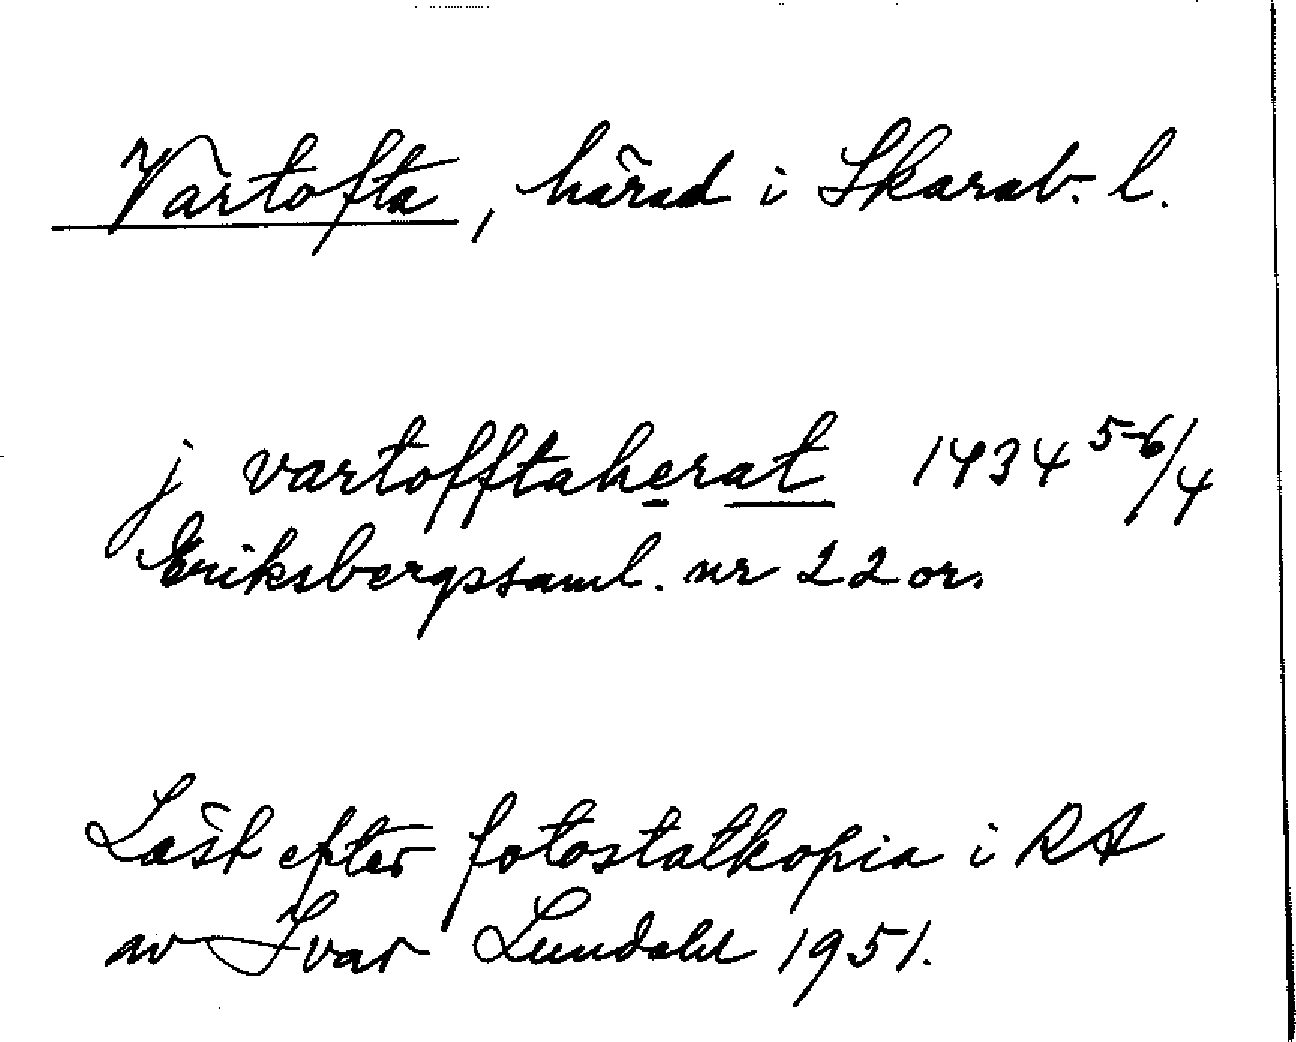 Vartofta, härad i Skarab. l.
j vartofftaherat 1434 5-6/4
Eriksbergssaml. nr 22 or.
Läst efter fotostatkopia i RA
av Ivar Lundahl 1951.